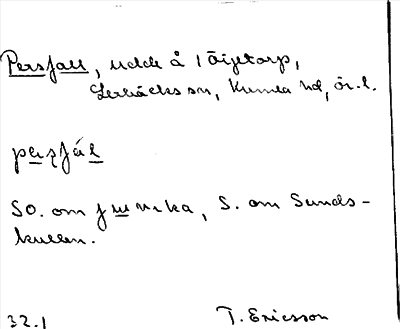 Persfall, udde å 1 Öijetorp,
Lerbäcks sn, Kumla hd, ör. l.
pęʂfál
SO. om Junika, S. om Sunds-
kullen.
32.1 T. Ericsson